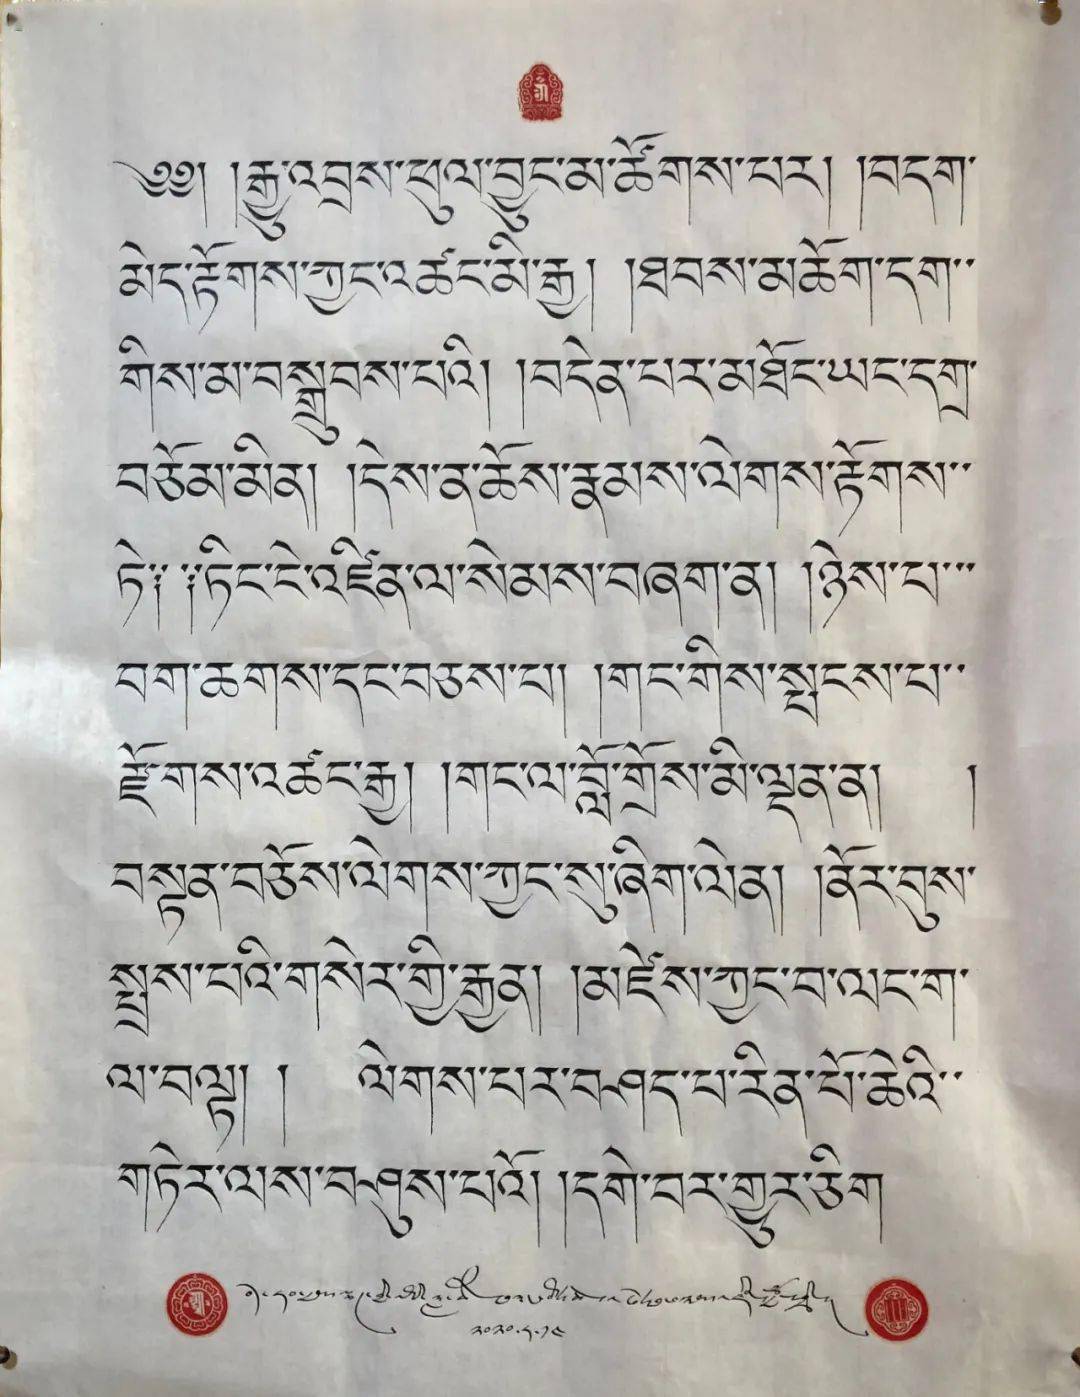 ༄༅། །རྒྱུ་འབྲས་ཕུལ་བྱུང་མ་ཚོགས་པར། །བདག་
མེད་རྟོགས་ཀྱང་འཚང་མི་རྒྱ། །ཐབས་མཆོག་དག་་
གིས་མ་བསྒྲུབས་པའི། །བདེན་པར་མཐོང་ཡང་དགྲ་
བཅོམ་མིན། །དེས་ན་ཆོས་རྣམས་ལེགས་རྟོགས་་
ཏེ༑ ༑ཏིང་ངེ་འཛིན་ལ་སེམས་བཞག་ན། །ཉེས་པ་་་
བག་ཆགས་དང་བཅས་པ། །གང་གིས་སྤངས་པ་་
རྫོགས་འཚང་རྒྱ། །གང་ལ་བློ་གྲོས་མི་ལྡན་ན། །
བསྟན་བཅོས་ལེགས་ཀྱང་སུ་ཞིག་ལེན། །ནོར་བུས་
སྤྲས་པའི་གསེར་གྱི་རྒྱན། །མཛེས་ཀྱང་བ་ལང་ག་
ལ་བལྟ། ། ལེགས་པར་བཤད་པ་རིན་པོ་ཆེའི་་
གཏེར་ལས་བཤུས་པའོ། །དགེ་བར་གྱུར་ཅིག
༢༠༢༠.༨.༡༥